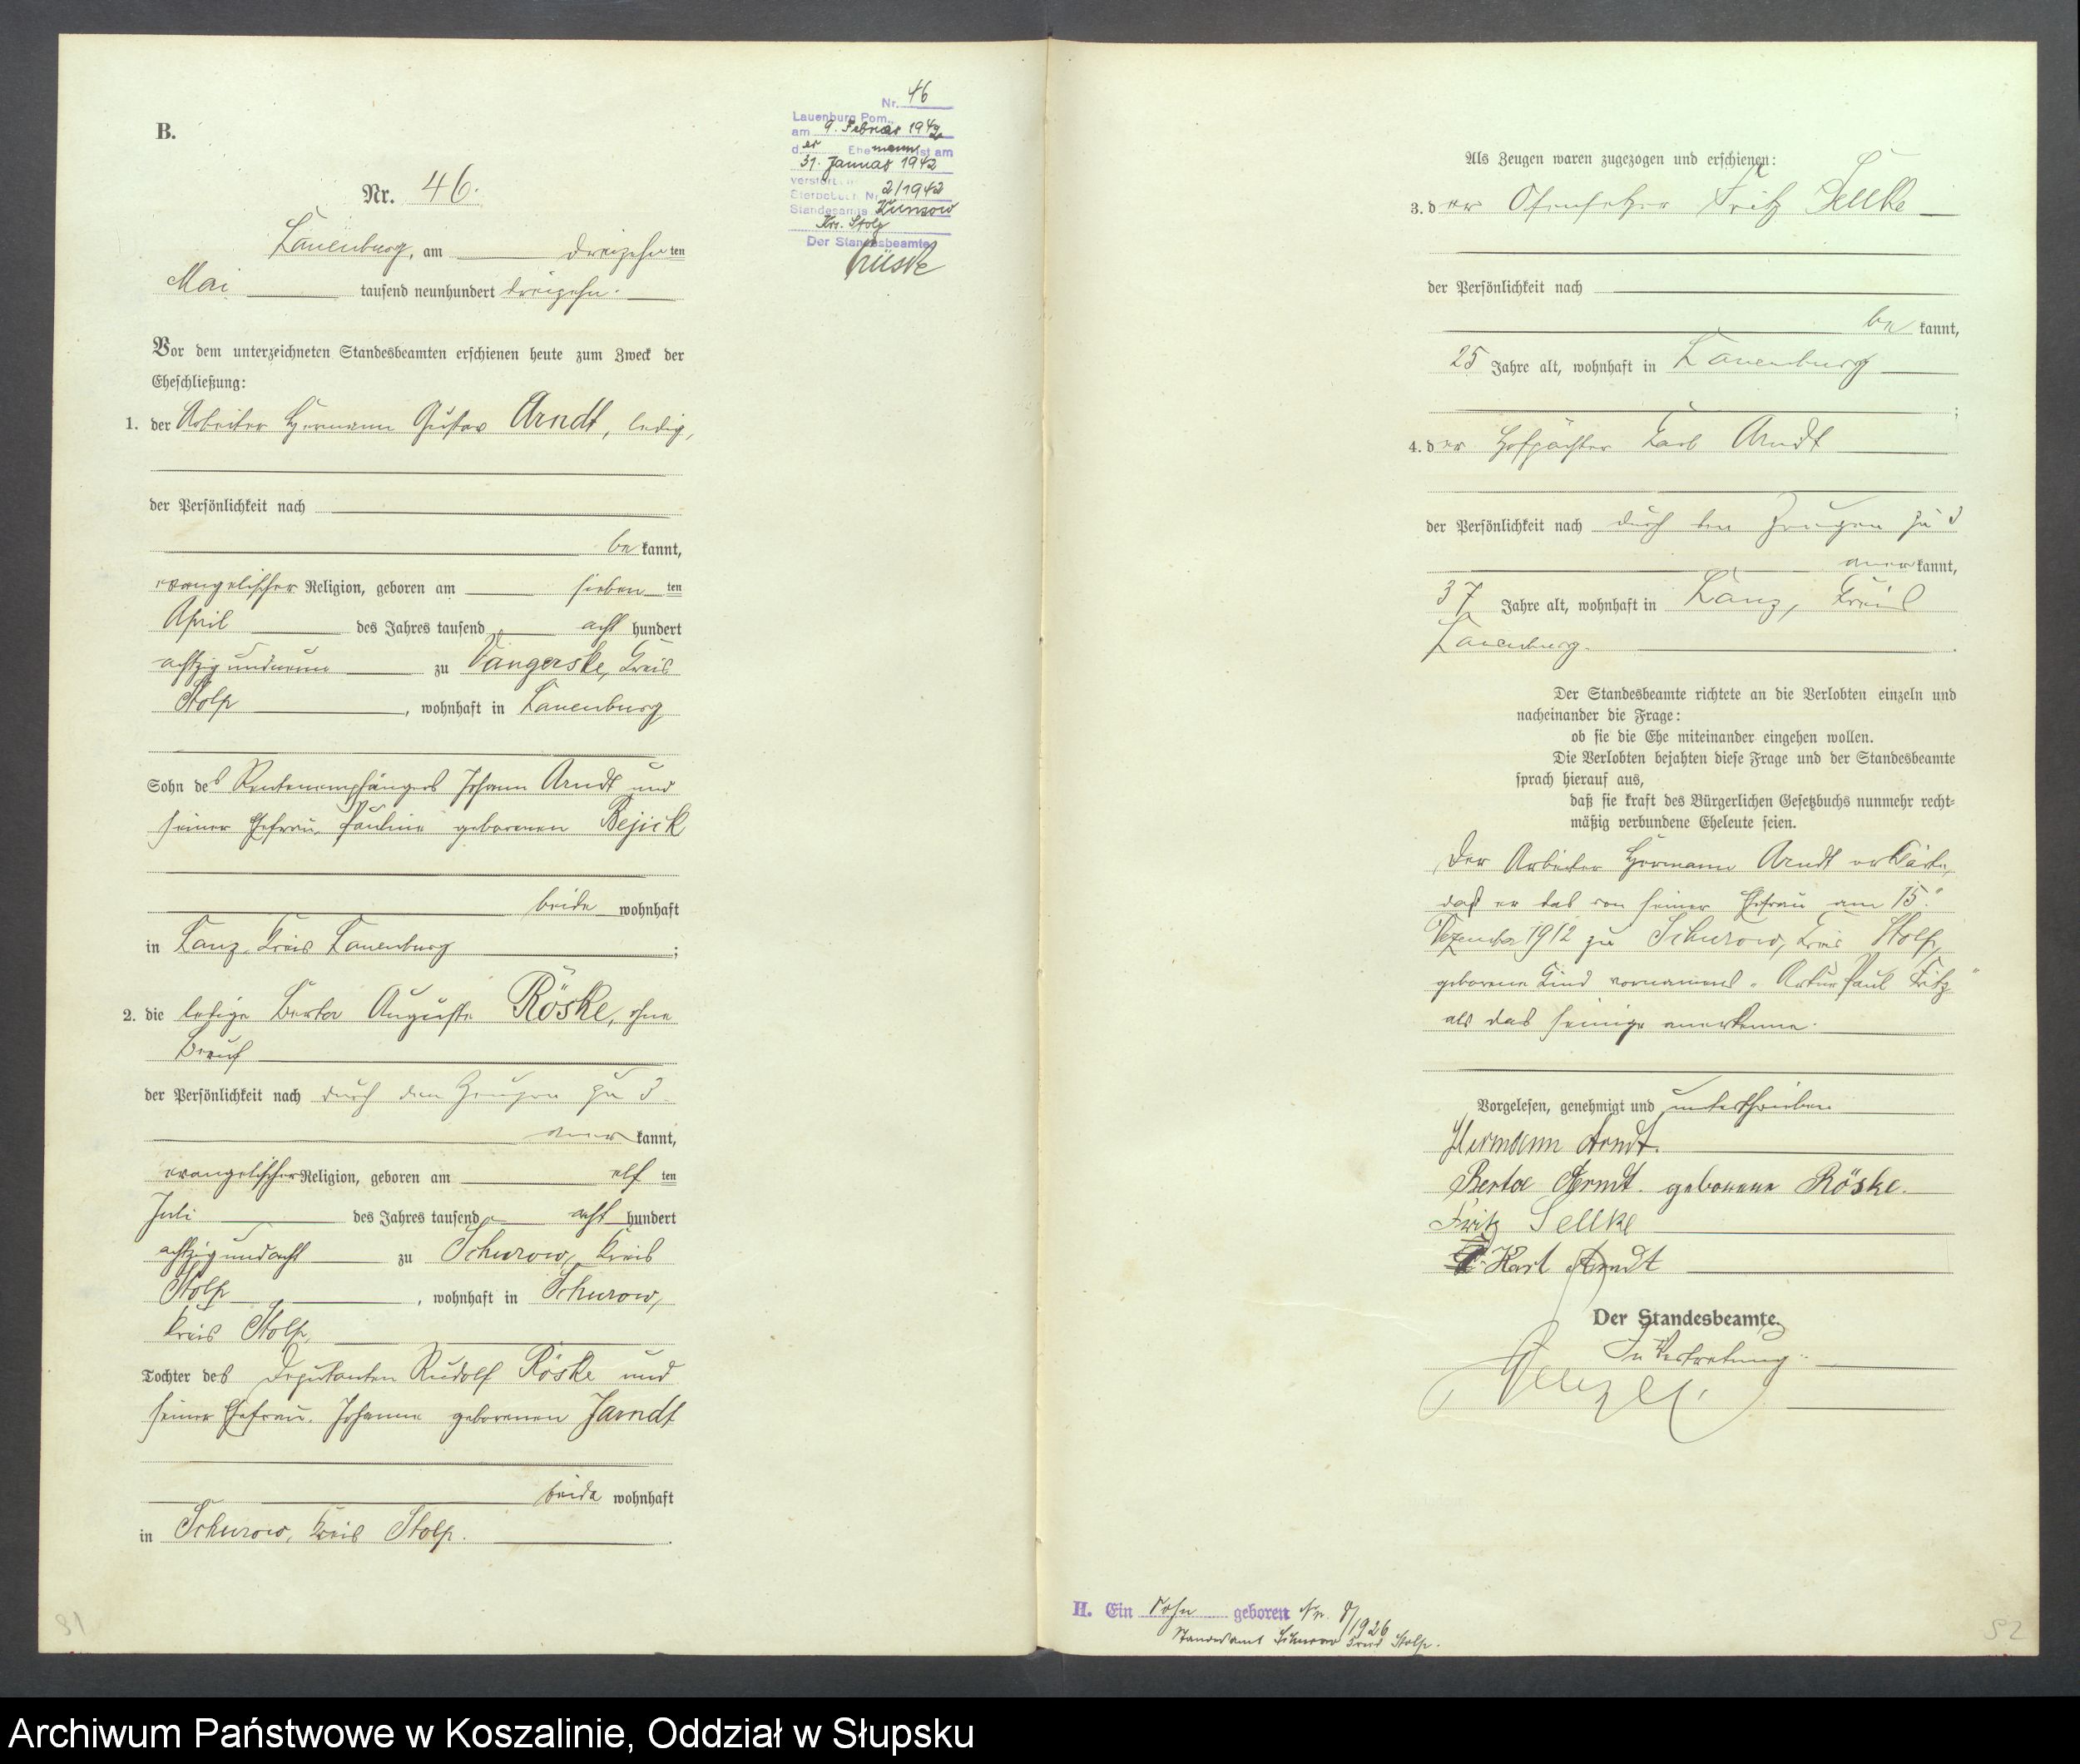 B.
Nr. 46.
Lauenburg, am dreizehnten
Mai tausend neunhundert dreizehn.
Vor dem unterzeichneten Standesbeamten erschienen heute zum Zweck der
Eheschließung:
1. der Arbeiter Hermann Gustav Arndt, ledig,
der Persönlichkeit nach
bekannt,
evangelischer Religion, geboren am siebenten
April des Jahres tausend acht hundert
achtzig und neun zu Vangerske, Kreis
Stolp, wohnhaft in Lauenburg
Sohn des Rentenempfängers Johann Arndt und
seiner Ehefrau Pauline geborenen Bejick
beide wohnhaft
in Lanz, Kreis Lauenburg;
2. die ledige Berta Auguste Röske, ohne
Beruf
der Persönlichkeit nach durch den Zeugen zu 3
anerkannt,
evangelischer Religion, geboren am elften
Juli des Jahres tausend acht hundert
achtzig und acht zu Schurow, Kreis
Stolp, wohnhaft in Schurow,
Kreis Stolp,
Tochter des Deputanten Rudolf Röske und
seiner Ehefrau Johanna geborenen Jarndt
beide wohnhaft
in Schurow, Kreis Stolp.
Nr. 46
Lauenburg Pom.,
am 9. Februar 1942
der Ehemann ist am
31. Januar 1942
verstorben
Sterbebuch Nr. 2/1942
Standesamts Kunsow
Krs. Stolp
Der Standesbeamte
91
Als Zeugen waren zugezogen und erschienen:
3. der Ofensetzer Fritz Sellke
der Persönlichkeit nach
bekannt,
25 Jahre alt, wohnhaft in Lauenburg
;
4. der Hofpächter Karl Arndt
der Persönlichkeit nach durch den Zeugen zu 3
anerkannt,
37 Jahre alt, wohnhaft in Lanz, Kreis
Lauenburg.
Der Standesbeamte richtete an die Verlobten einzeln und
nacheinander die Frage:
ob sie die Ehe miteinander eingehen wollen.
Die Verlobten bejahten diese Frage und der Standesbeamte
sprach hierauf aus,
daß sie kraft des Bürgerlichen Gesetzbuchs nunmehr recht-
mäßig verbundene Eheleute seien.
Der Arbeiter Hermann Arndt erklärte,
daß er das von seiner Ehefrau am 15.
Dezember 1912 zu Schurow, Kreis Stolp,
geborene Kind vornamens „Artur Paul Fritz“
als das seinige anerkenne.
Vorgelesen, genehmigt und unterschrieben
Hermann Arndt.
Berta Arndt. geborene Röske.
Fritz Sellke
Karl Arndt
Der Standesbeamte.
In Vertretung.
H. Ein Sohn geboren Nr. 8/1926
Standesamt Schurow Kreis Stolp.
92
Archiwum Państwowe w Koszalinie, Oddział w Słupsku